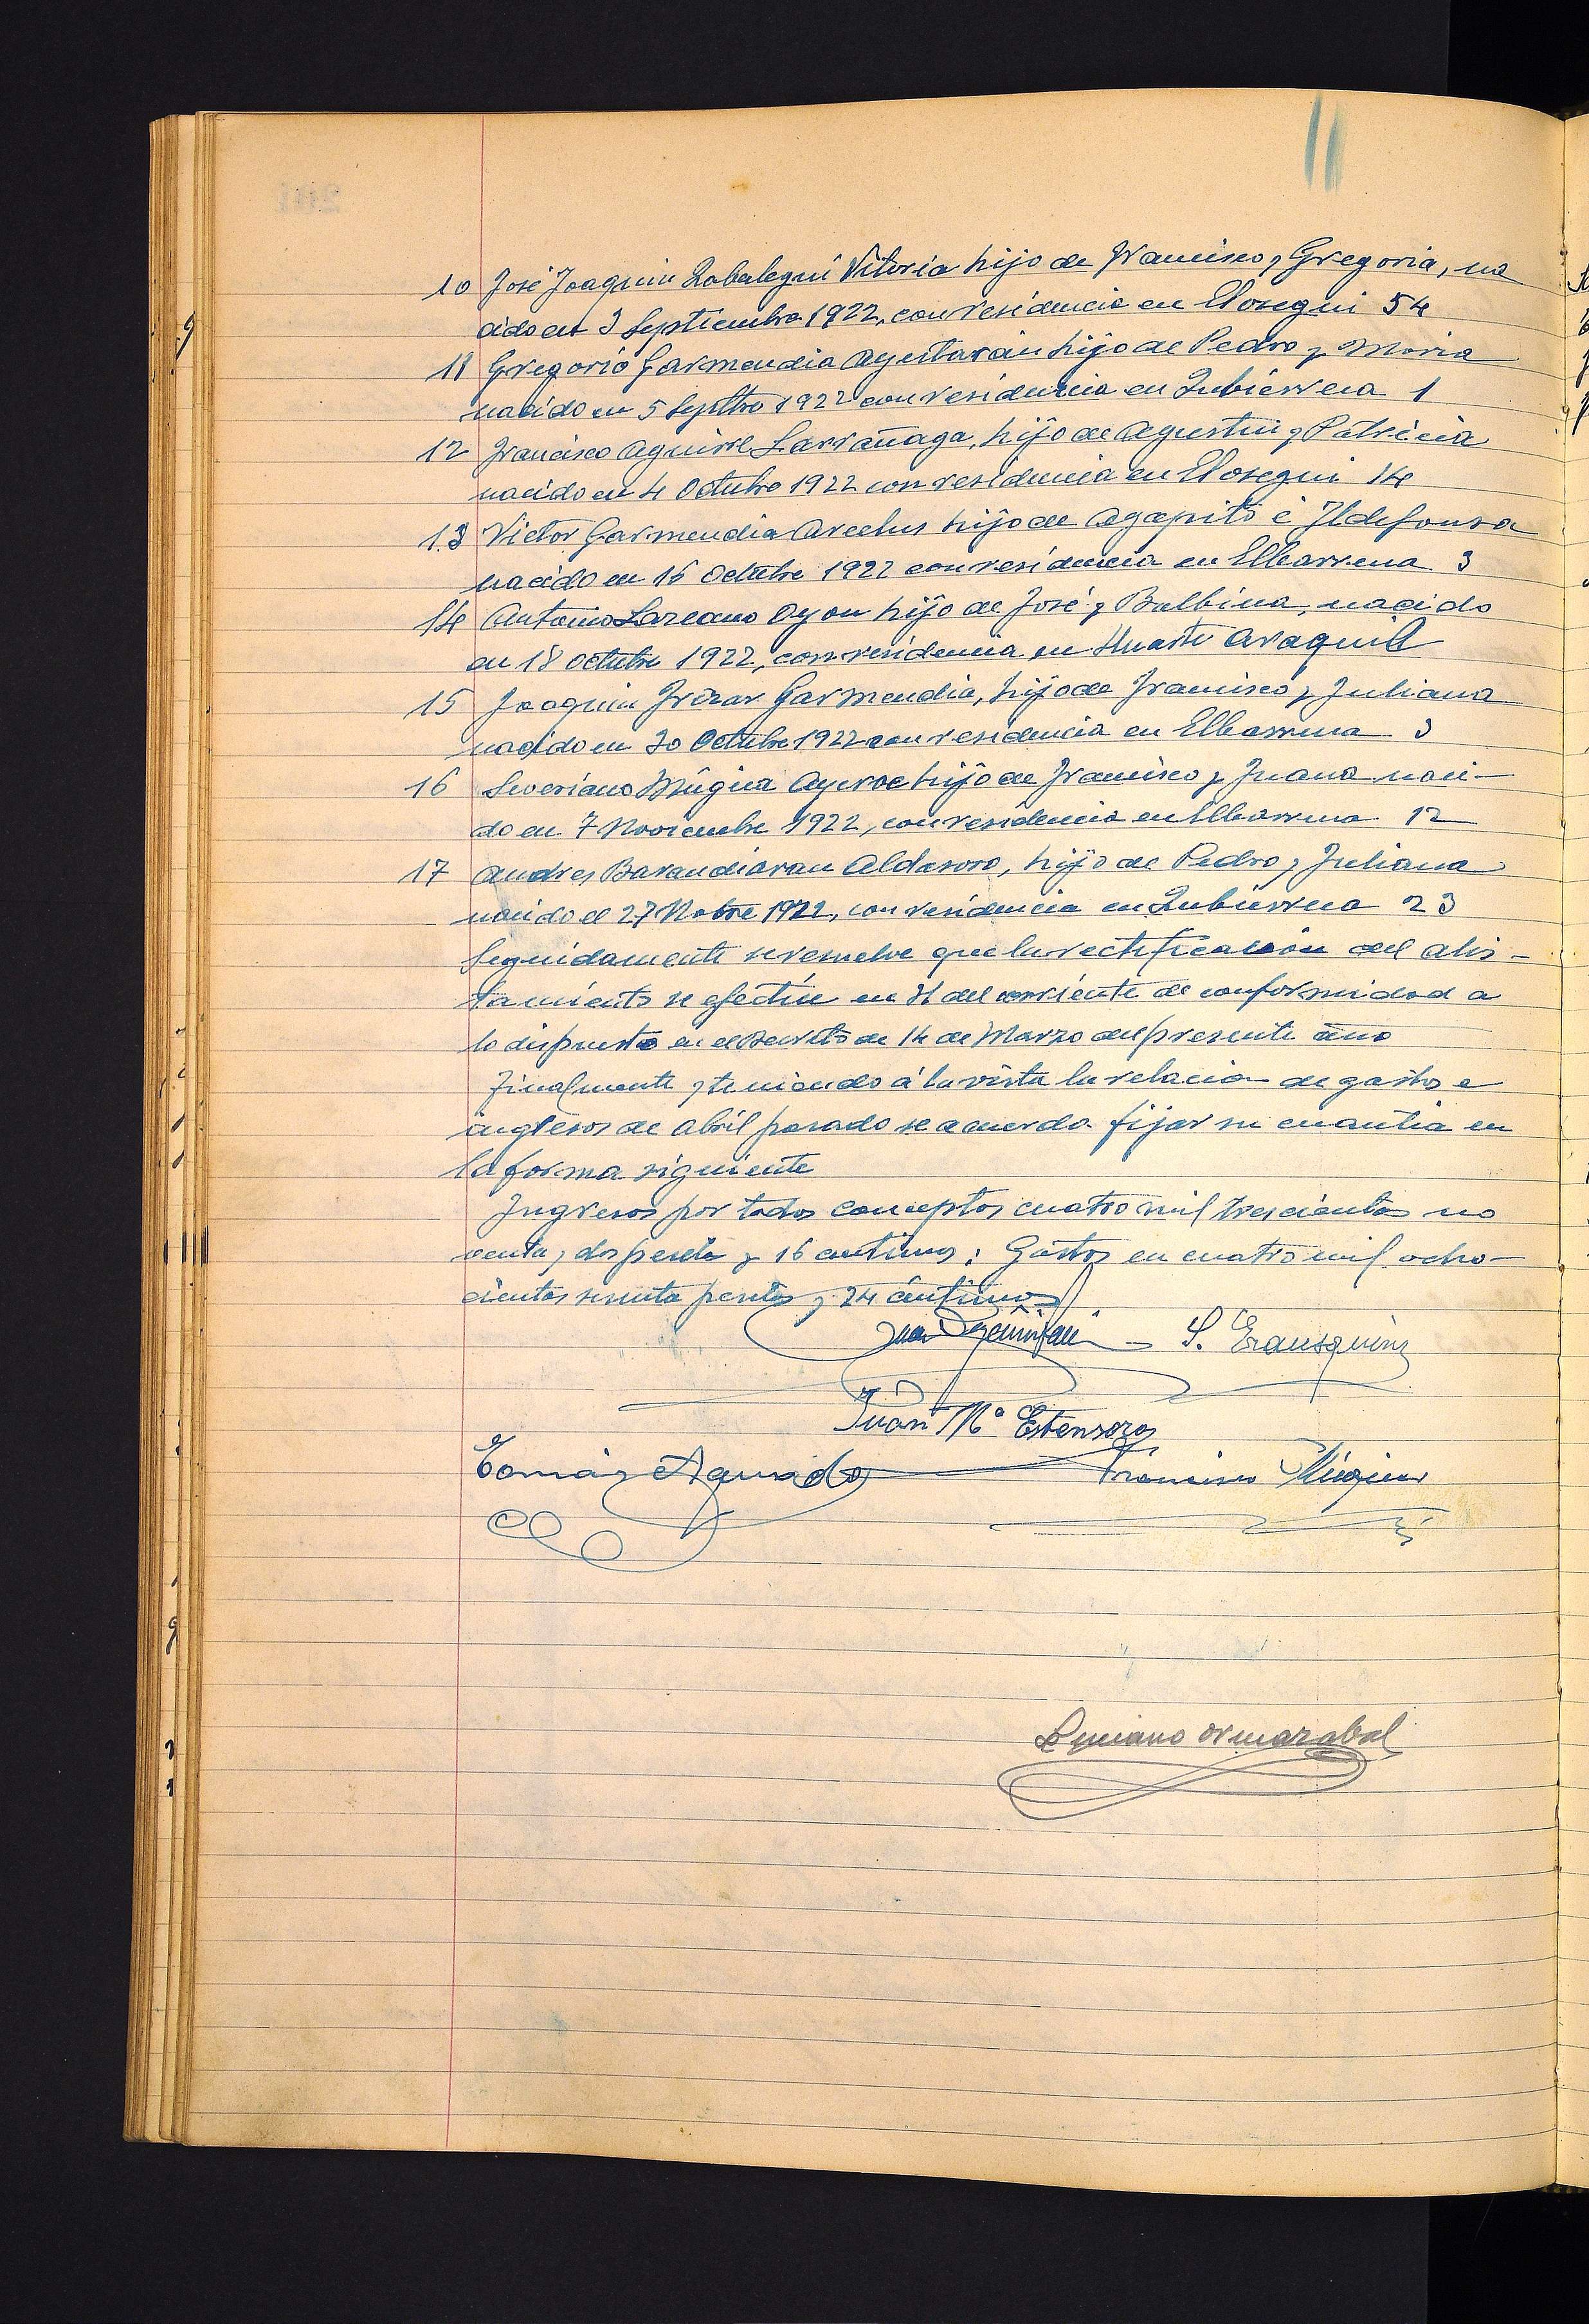 11
10 José Joaquin Zabalegui Vitoria hijo de Francisco y Gregoria, na
cido en 3 Septiembre 1922, con residencia en Elosegui 54
11 Gregorio Garmendia Ayestarán hijo de Pedro y Maria
nacido en 5 Septbre 1922 con residencia en Zubierrena 1
12 Francisco Aguirre Larrañaga, hijo de Agustin y Patricia
nacido en 4 Octubre 1922 con residencia en Elosegui 14
13 Victor Garmendia Arcelus hijo de Agapito é Ildefonsa
nacido en 16 Octubre 1922 con residencia en Elbarrena 3
14 Antonio Lazcano Oyon hijo de José y Balbina, nacido
en 18 octubre 1922, con residencia en Huarte Araquil
15 Joaquin Irizar Garmendia, hijo de Francisco y Juliana
nacido en 30 Octubre 1922 con residencia en Elbarrena 3
16 Severiano Múgica Ayerbe hijo de Francisco y Juana naci-
do en 7 Noviembre 1922, con residencia en Elbarrena 12
17 Andres Barandiaran Aldasoro, hijo de Pedro y Juliana
nacido el 27 Nobre 1922, con residencia en Zubierrena 23
Seguidamente se resuelve que la rectificación del alis-
tamiento se efectúe en 31 del corriente de conformidad a
lo dispuesto en el Decreto de 14 de Marzo del presente año
Finalmente y teniendo á la vista la relacion de gastos e
ingresos de Abril pasado se acuerda fijar su cuantia en
la forma siguiente
Ingresos por todos conceptos cuatro mil trescientas no
venta y dos pesetas y 16 centimos: Gastos en cuatro mil ocho-
cientas sesenta pesetas y 24 céntimos
Juan S. Erausquin
Juan Mª Estensoro
Tomás Aguado Francisco Múgica
Luciano Ormazabal